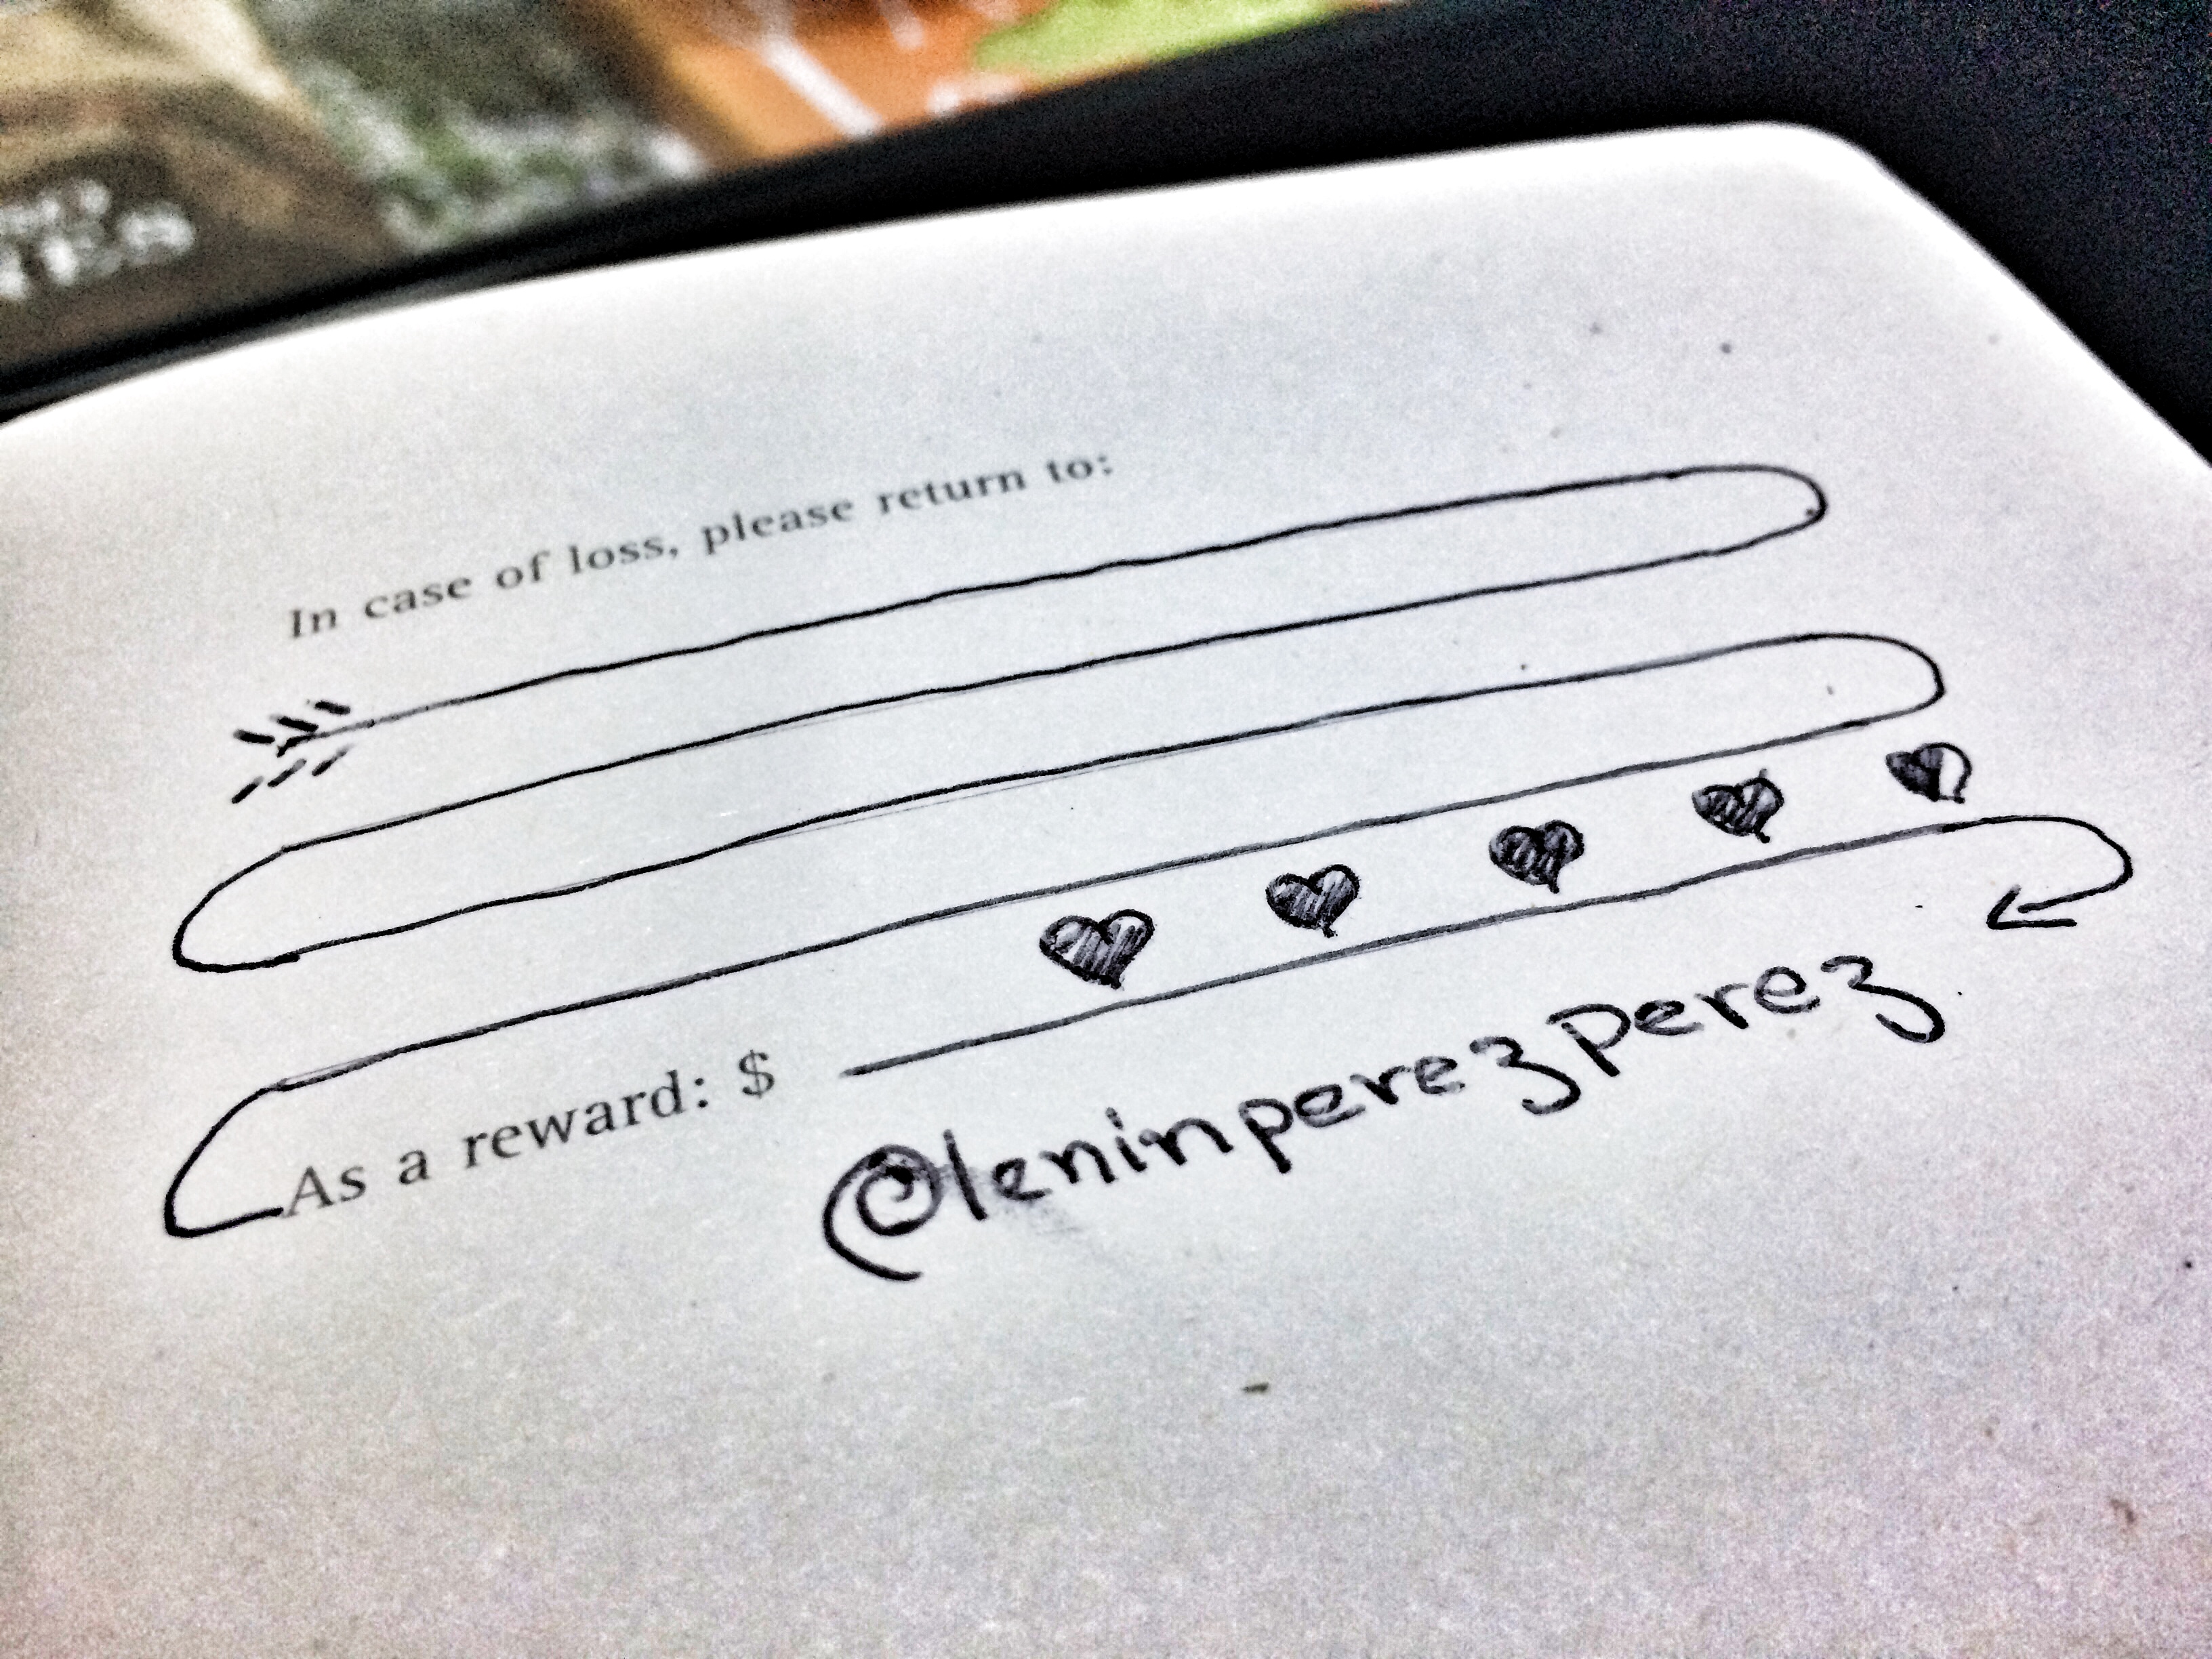 In case of loss, please return to:
As a reward: $
@leninperezperez